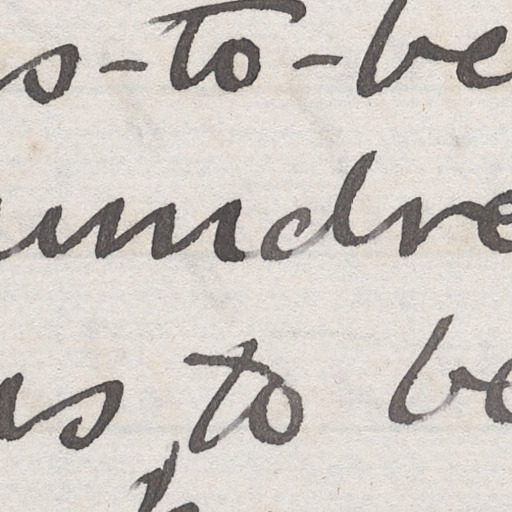 s-to-be
undre
us, to be